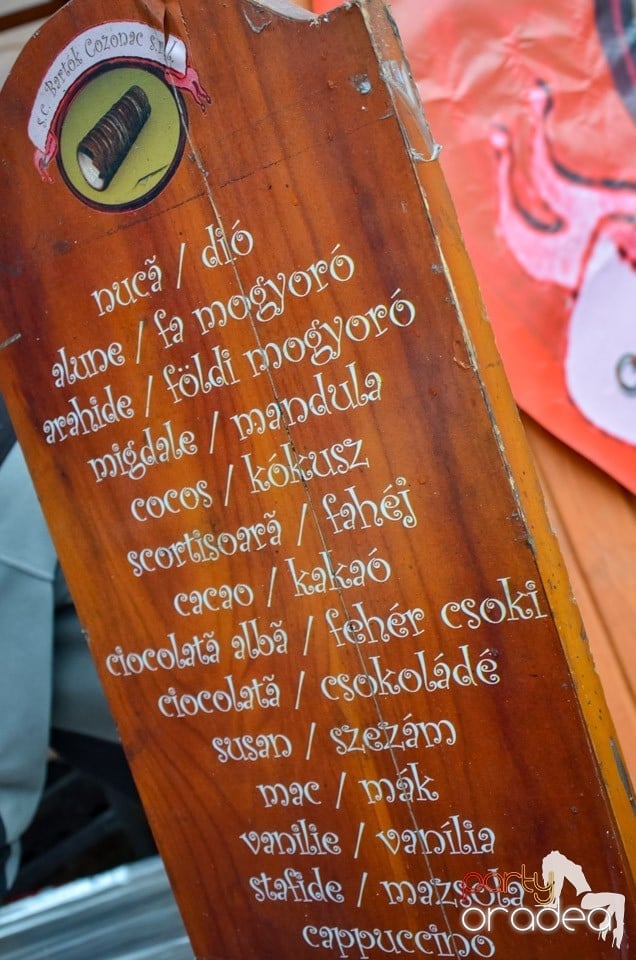 S.C. Bartok Cozonac s.r.l.
nucã / dió
alune / fa mogyoró
arahide / földi mogyoró
migdale / mandula
cocos / kókusz
scortisoarã / fahéj
cacao / kakaó
ciocolatã albã / fehér csoki
ciocolatã / csokoládé
susan / szezám
mac / mák
vanilie / vanília
stafide / mazsola
cappuccino
party
oradea